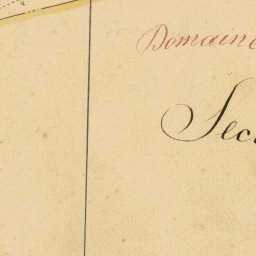 Domain
Sec